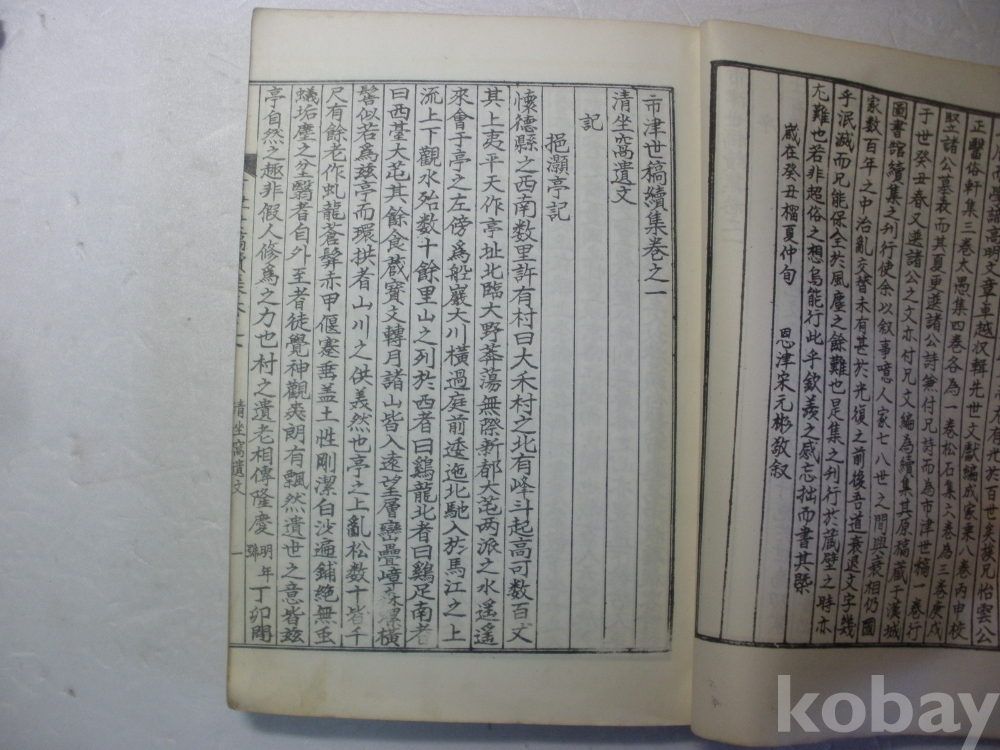 正醫俗軒集三卷太愚集四卷各為一卷松石集之卷為三卷庚戌
堅諸公墓表而其夏更邀諸公詩兼付兄詩而為市津世稿一卷行
于世癸丑春又邀諸公之文亦付兄文編為續集其原稿藏于漢城
圖書館續集之刊行使余以敘事噫人家七八世之間興衰相仍國
家數百年之中治亂交替未有甚於光復之前後吾道衰退文字幾
乎泯滅而兄能保全於風塵之餘難也是集之刊行於藏壁之時亦
尤難也若非超俗之想烏能行此乎欽羨之感忘拙而書其槩
歲在癸丑榴夏仲旬
恩津宋元彬敬叙
市津世稿續集卷之一
清坐窩遺文
記
挹灝亭記
懷德縣之西南数里許有村曰大禾村之北有峰斗起高可数百丈
其上夷平天作亭址北臨大野莽蕩無際新都大芚两派之水遥遥
來會于亭之左傍爲船巖大川橫過庭前逶迤北馳入於馬江之上
流上下觀水殆数十餘里山之列於西者曰鷄龍北者曰鷄足南者
曰西臺大芚其餘食蔵寶文轉月諸山皆入遠望層巒疊嶂森潔橫
髻似若爲玆亭而環拱者山川之供義然也亭之上亂松数十皆千
尺有餘老作虬龍蒼髯赤甲偃蹇垂盖土性剛潔白沙遍鋪絶無垂
蟻垢塵之坌翳者自外至者徒覺神觀爽朗有飄然遺世之意皆玆
亭自然之趣非假人修爲之力也村之遺老相傳隆慶明年號丁卯間
清坐窩遺文
一
kobay